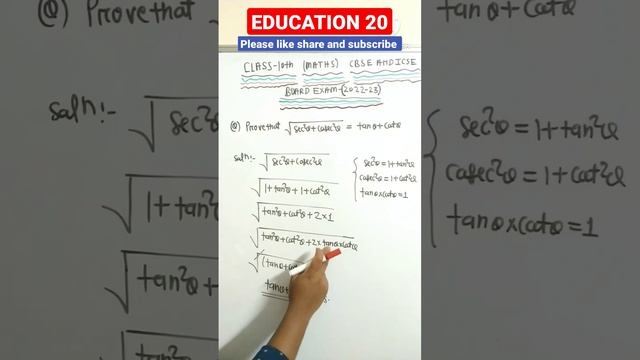 EDUCATION 20
Please like share and subscribe
CLASS-10th (MATHS) CBSE AND ICSE
BOARD EXAM-(2022-23)
Q) Prove that √sec²θ+cosec²θ = tanθ+cotθ
Solⁿ:- √sec²θ+cosec²θ
√1+tan²θ+1+cot²θ
√tan²θ+cot²θ+2×1
√tan²θ+cot²θ+2×tanθ×cotθ
√(tanθ+
tanθ+
sec²θ=1+tan²θ
cosec²θ=1+cot²θ
tanθ×cotθ=1
Q) Prove that
Solⁿ:-
√sec²θ
√1+tan²
√tan²θ
tanθ+cotθ
sec²θ=1+tan²θ
cosec²θ=1+cot²θ
tanθ×cotθ=1